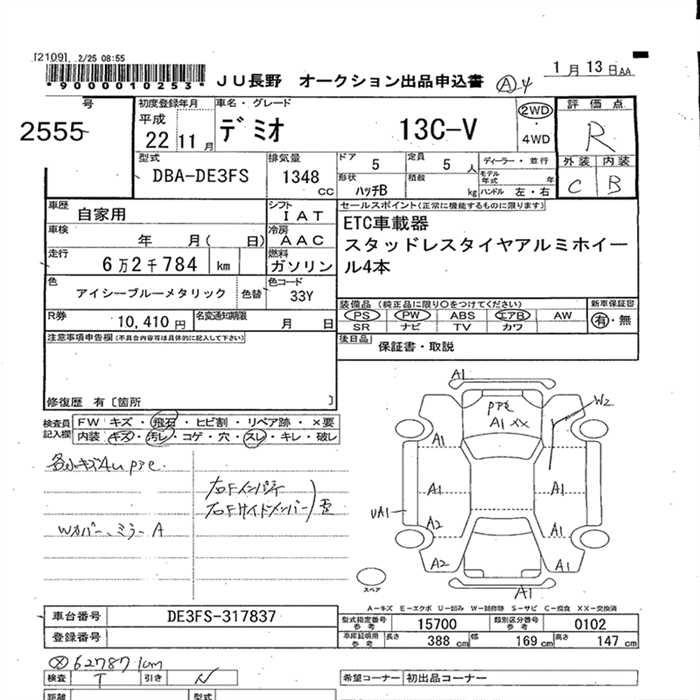 [2109] 2/25 08:55
*90000010253*
JU長野 オークション出品申込書
A-4
1月13日AA
号
2555
初度登録年月
平成
22 11月
車名・グレード
デミオ 13C-V
2WD
・
4WD
評価点
R
外装 内装
C B
型式
DBA-DE3FS
排気量
1348
cc
ドア
5
定員
5人
ディーラー・並行
形状
ハッチB
積載
kg
モデル年式 年
ハンドル 左・右
車歴
自家用
シフト
IAT
車検
年 月( 日)
冷房
AAC
走行
6万2千784 km
燃料
ガソリン
色
アイシーブルーメタリック
色替
色コード
33Y
R券
10,410円
名変通知期限
月 日
セールスポイント(正常に機能するものに限ります)
ETC車載器
スタッドレスタイヤアルミホイール4本
装備品 (純正品に限り○をつけてください)
PS PW ABS エアB AW
SR ナビ TV カワ
新車保証書
有・無
後日品
保証書・取説
注意事項申告欄(不具合内容等は具体的に記入して下さい)
修復歴 有[箇所 ]
検査員記入欄
FW キズ・飛石・ヒビ割・リペア跡・×要
内装 キズ・汚レ・コゲ・穴・スレ・キレ・破レ
Wカバー、ミラーA
右Fインパネ
右Fサイドメンバー
A1
A1 XX
W2
A1
A1
A1
A1
UA1
A2
A1
A2
A1
A1
スペア
A-キズ E-エクボ U-凹み W-補修跡 S-サビ C-腐食 XX-交換済
車台番号
DE3FS-317837
登録番号
型式指定番号
参考
15700
類別区分番号
参考
0102
車庫証明用
参考
長さ 388 cm
幅 169 cm
高さ 147 cm
62787km
検査 T
引き N
希望コーナー 初出品コーナー
距離
型式